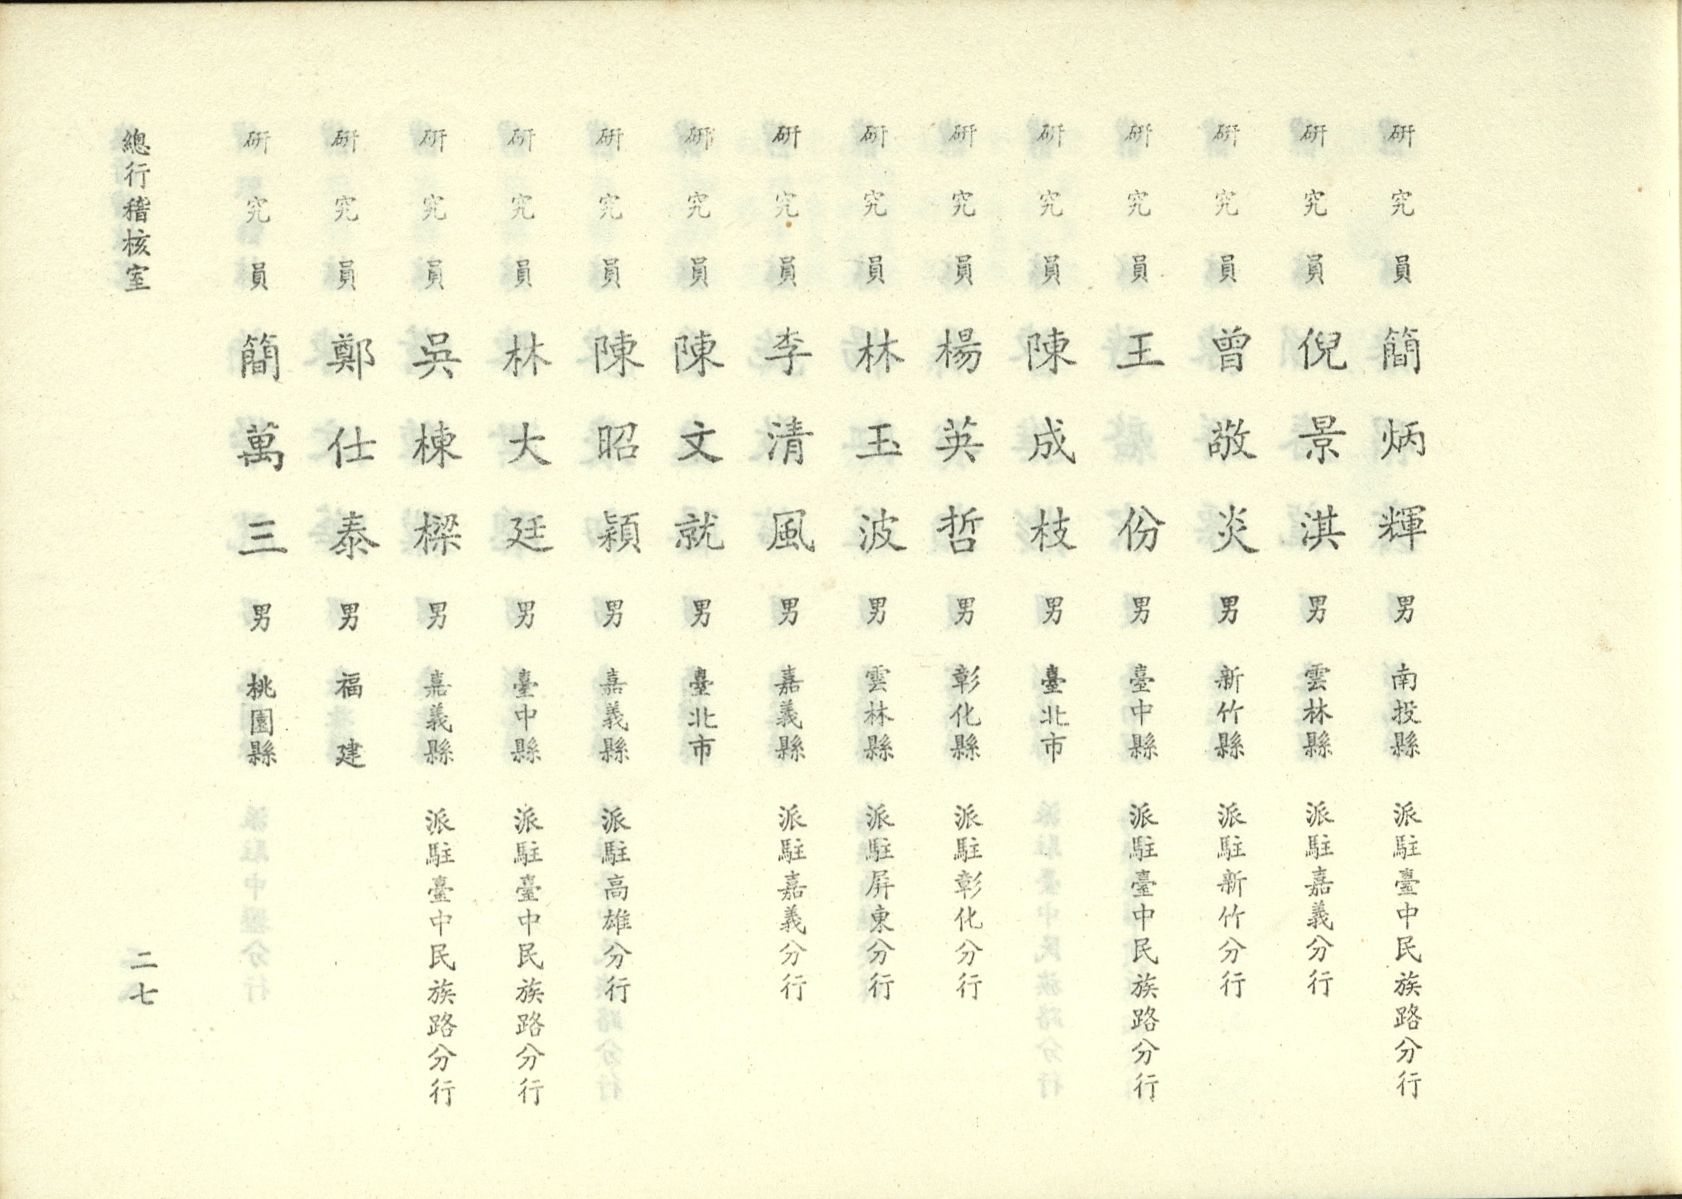 研究員 簡炳輝 男 南投縣 派駐臺中民族路分行
研究員 倪景淇 男 雲林縣 派駐嘉義分行
研究員 曾敬炎 男 新竹縣 派駐新竹分行
研究員 王份 男 臺中縣 派駐臺中民族路分行
研究員 陳成枝 男 臺北市
研究員 楊英哲 男 彰化縣 派駐彰化分行
研究員 林玉波 男 雲林縣 派駐屏東分行
研究員 李清風 男 嘉義縣 派駐嘉義分行
研究員 陳文就 男 臺北市
研究員 陳昭穎 男 嘉義縣 派駐高雄分行
研究員 林大廷 男 臺中縣 派駐臺中民族路分行
研究員 吳棟樑 男 嘉義縣 派駐臺中民族路分行
研究員 鄭仕泰 男 福建
研究員 簡萬三 男 桃園縣
總行稽核室 二七